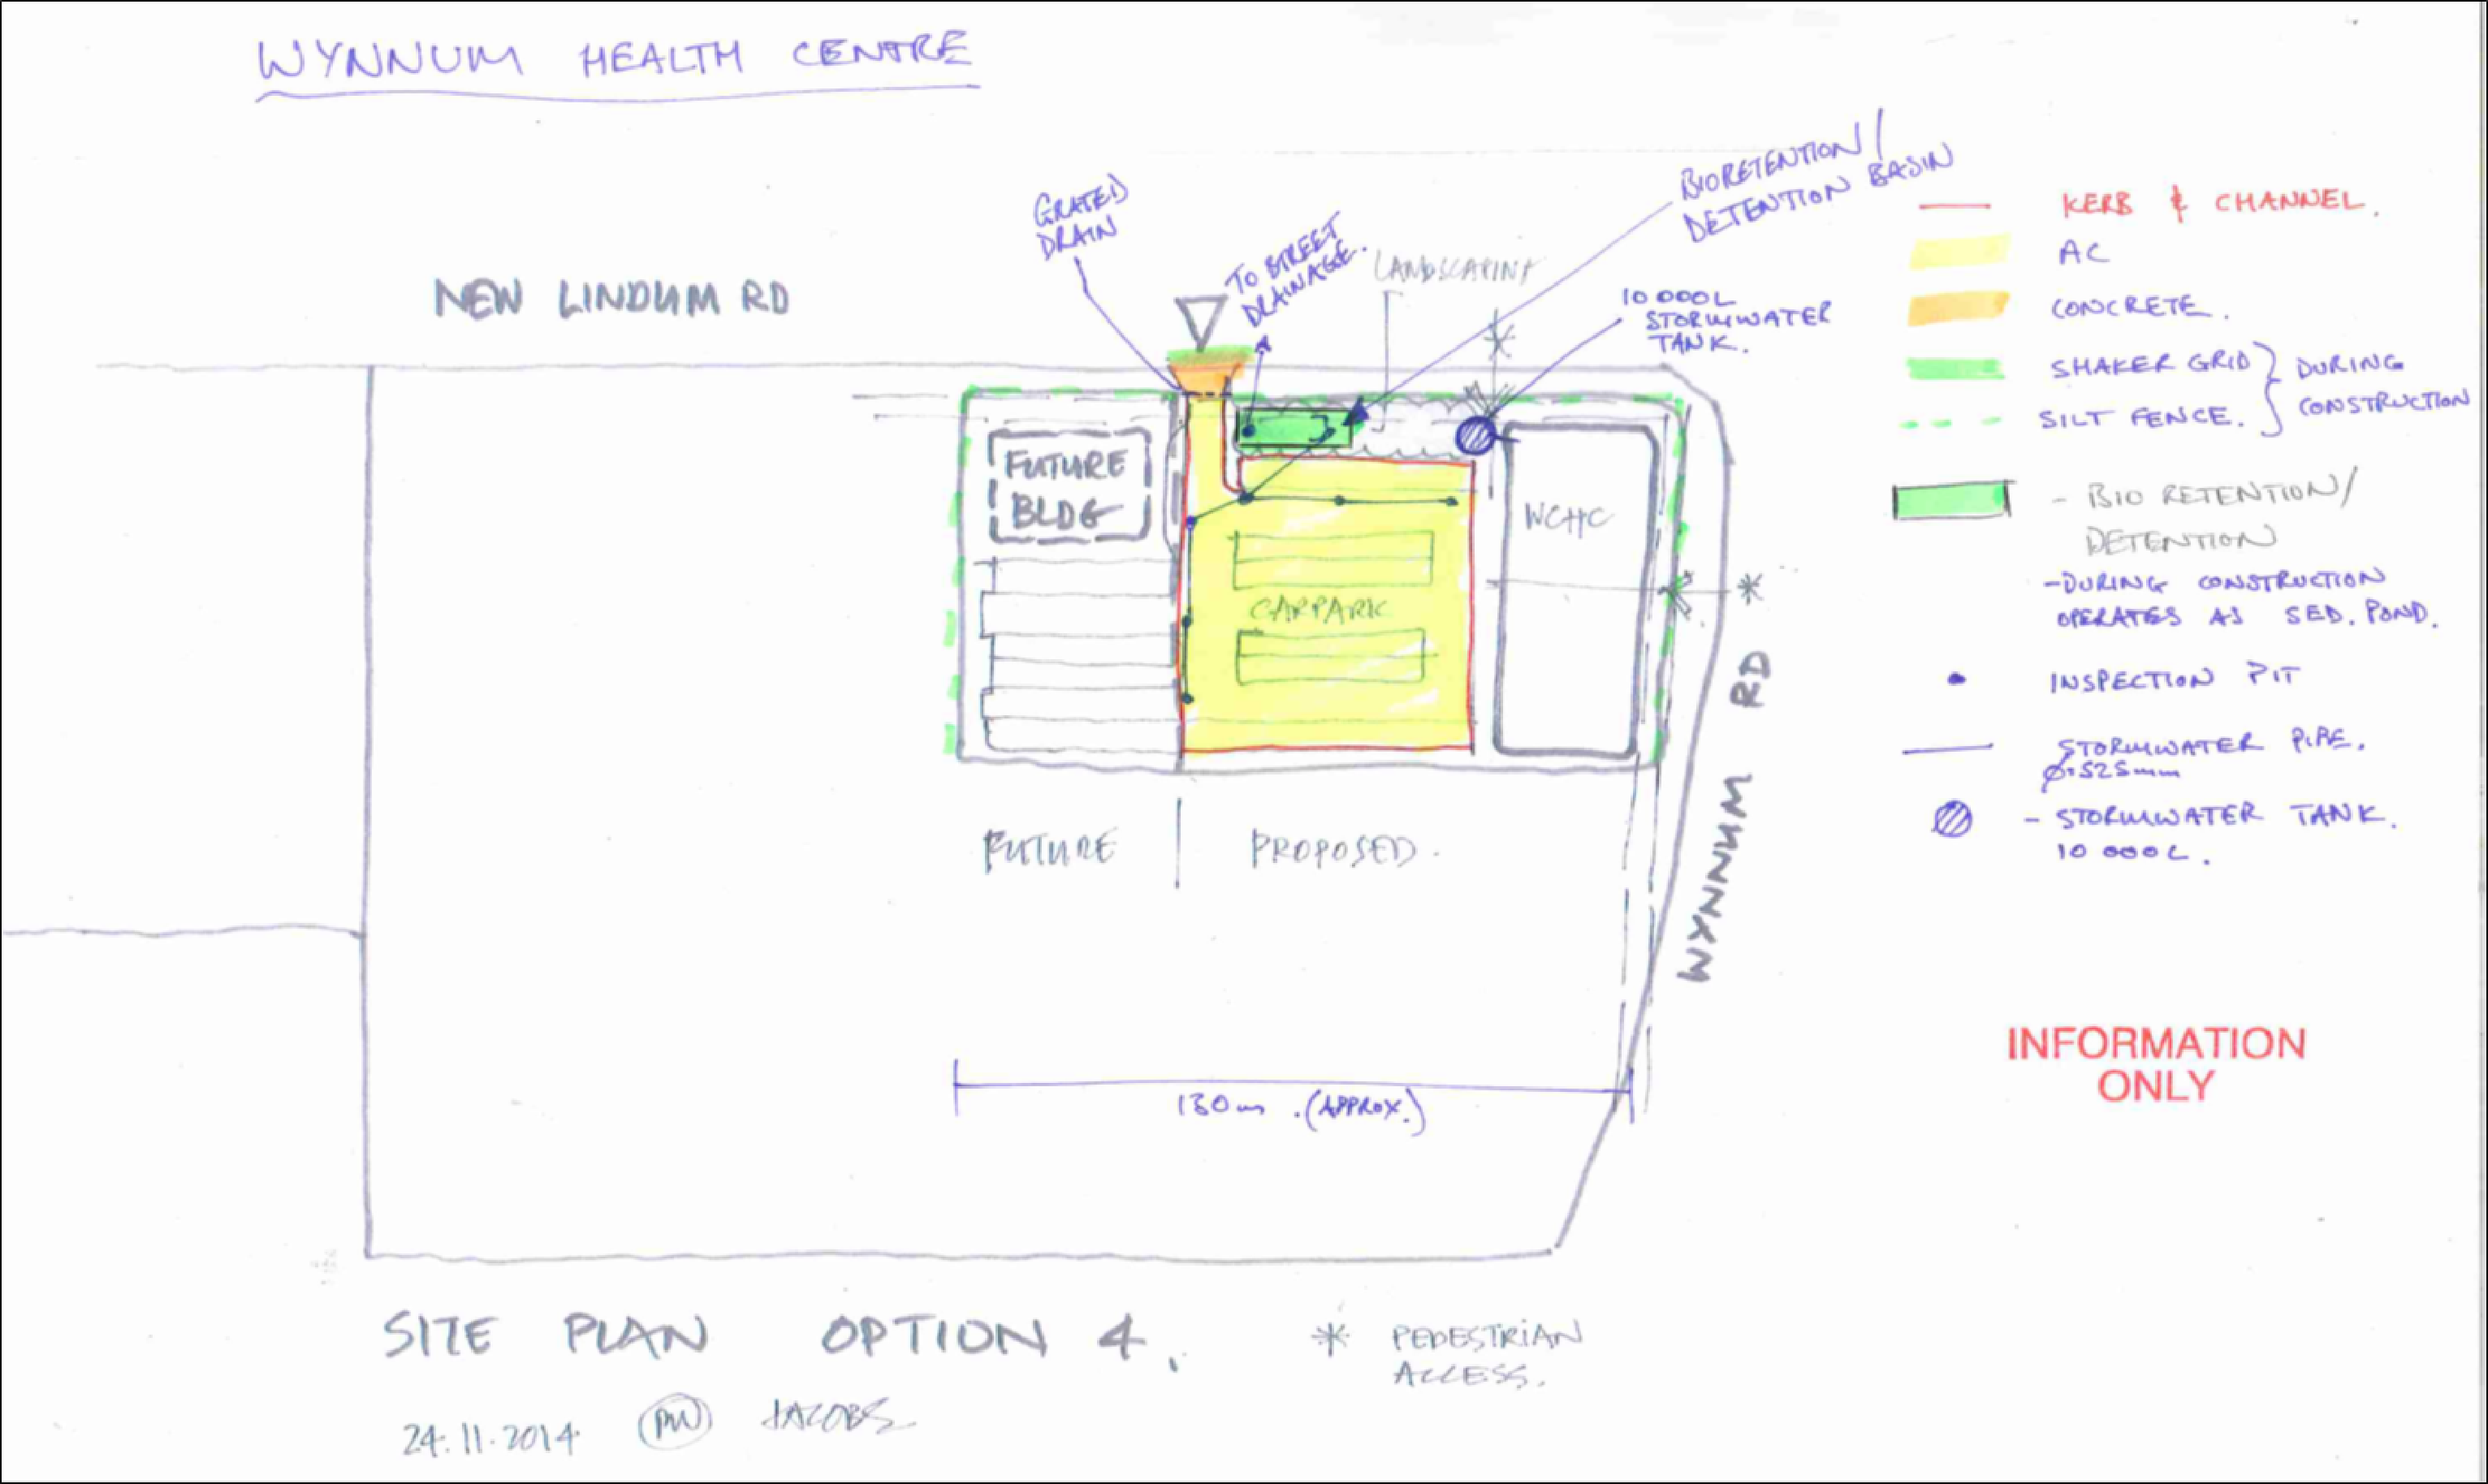 WYNNUM HEALTH CENTRE
GRATED
DRAIN
TO STREET
DRAINAGE.
LANDSCAPING
BIORETENTION/
DETENTION BASIN
10 000L
STORMWATER
TANK.
NEW LINDUM RD
FUTURE
BLDG
CARPARK
WCHC
WYNNUM RD
FUTURE
PROPOSED.
130m .(APPROX.)
KERB & CHANNEL.
AC
CONCRETE.
SHAKER GRID
SILT FENCE.
DURING
CONSTRUCTION
- BIO RETENTION/
DETENTION
-DURING CONSTRUCTION
OPERATES AS SED. POND.
INSPECTION PIT
STORMWATER PIPE.
Ø=525mm
- STORMWATER TANK.
10 000L.
INFORMATION
ONLY
SITE PLAN OPTION 4.
* PEDESTRIAN
ACCESS.
24.11.2014 PW JACOBS